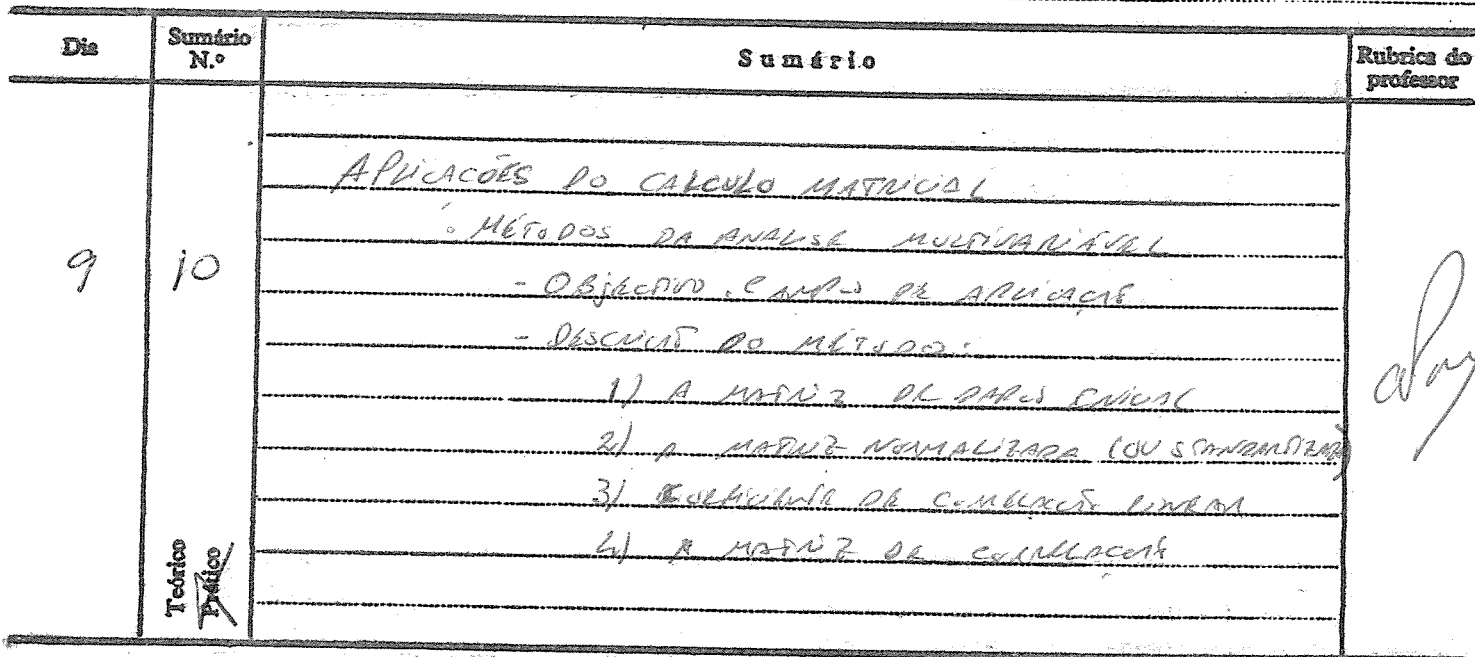 Dia
Sumário N.º
Sumário
Rubrica do professor
9
10
APLICAÇÕES DO CALCULO MATRICIAL
. MÉTODOS DA ANALISE MULTIVARIÁVEL
- OBJECTIVO. CAMPO DE APLICAÇÃO
- DESCRIÇÃO DO MÉTODO:
1) A MATRIZ DE DADOS INICIAL
2) A MATRIZ NORMALIZADA (OU STANDARTIZADA)
3) COEFICIENTE DE CORRELAÇÃO LINEAR
4) A MATRIZ DE CORRELAÇÃO
Teórico
Prático